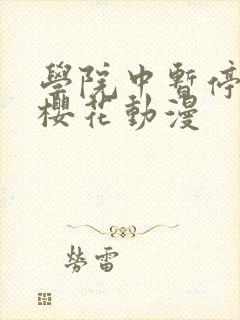 學院中暫停
櫻花動漫
勞雷